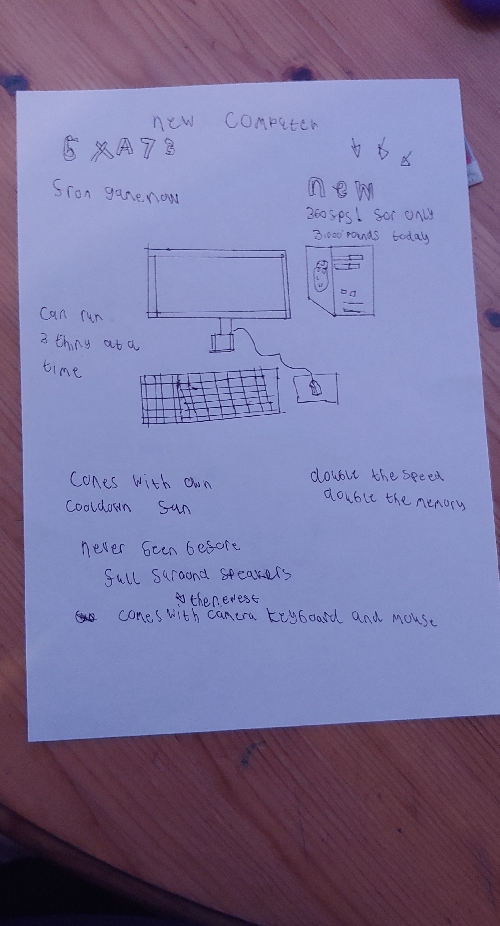 new computer
GXA73
new
from gamenow
360fps! for only
3,000 pounds today
Can run
3 thing at a
time
Comes with own
cooldown fan
double the speed
double the memory
never seen before
full suround speakers
the newest
comes with camera keyboard and mouse